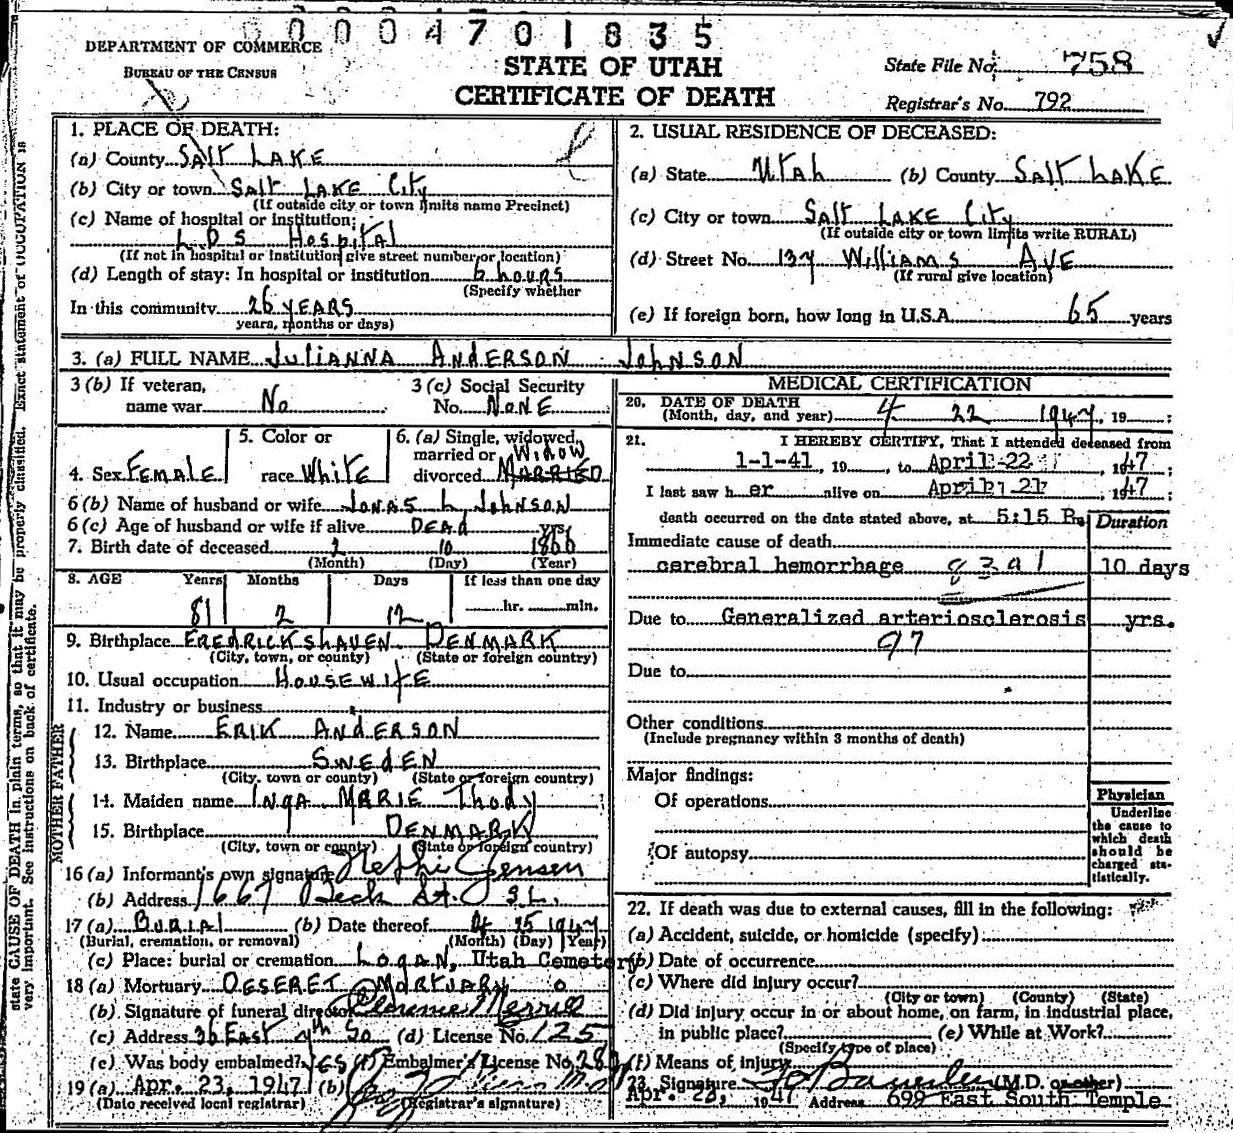 0004701835
DEPARTMENT OF COMMERCE
BUREAU OF THE CENSUS
STATE OF UTAH
CERTIFICATE OF DEATH
State File No. 758
Registrar's No. 792
1. PLACE OF DEATH:
(a) County SALT LAKE
(b) City or town SALT LAKE City
(If outside city or town limits name Precinct)
(c) Name of hospital or institution:
L.D.S Hospital
(If not in hospital or institution give street number or location)
(d) Length of stay: In hospital or institution 6 hours
(Specify whether
In this community 26 YEARS
years, months or days)
2. USUAL RESIDENCE OF DECEASED:
(a) State Utah (b) County SALT LAKE
(c) City or town SALT LAKE City
(If outside city or town limits write RURAL)
(d) Street No. 137 Williams AVE
(If rural give location)
(e) If foreign born, how long in U.S.A. 65 years
3. (a) FULL NAME JULIANNA ANDERSON JOHNSON
3 (b) If veteran, name war No
3 (c) Social Security No. NONE
4. Sex FEMALE
5. Color or race White
6. (a) Single, widowed, married or divorced Widow MARRIED
6 (b) Name of husband or wife JONAS L. JOHNSON
6 (c) Age of husband or wife if alive DEAD yrs.
7. Birth date of deceased 2 10 1866
(Month) (Day) (Year)
8. AGE Years Months Days If less than one day
81 2 12 hr. min.
9. Birthplace FREDRICKSHAVEN DENMARK
(City, town, or county) (State or foreign country)
10. Usual occupation HOUSEWIFE
11. Industry or business
FATHER
12. Name ERIK ANDERSON
13. Birthplace SWEDEN
(City, town or county) (State or foreign country)
MOTHER
14. Maiden name INGA MARIE Thody
15. Birthplace DENMARK
(City, town or county) (State or foreign country)
16 (a) Informant's own signature Jensen
(b) Address 1667 Beck St. S.L.
17 (a) BURIAL (b) Date thereof 4 25 1947
(Burial, cremation, or removal) (Month) (Day) (Year)
(c) Place: burial or cremation LOGAN, Utah Cemetery
18 (a) Mortuary DESERET MORTUARY
(b) Signature of funeral director Merrill
(c) Address 36 EAST 7th So (d) License No. 125
(e) Was body embalmed? YES (f) Embalmer's License No.
19 (a) Apr. 23, 1947 (b)
(Date received local registrar) (Registrar's signature)
MEDICAL CERTIFICATION
20. DATE OF DEATH
(Month, day, and year) 4 22 1947, 19 ;
21. I HEREBY CERTIFY, That I attended deceased from
1-1-41, 19 , to April 22, 1947;
I last saw her alive on April 21, 1947
death occurred on the date stated above, at 5:15 P. Duration
Immediate cause of death
cerebral hemorrhage 10 days
Due to Generalized arteriosclerosis yrs.
97
Due to
Other conditions
(Include pregnancy within 3 months of death)
Major findings:
Of operations
Of autopsy
Physician
Underline the cause to which death should be charged statistically.
22. If death was due to external causes, fill in the following:
(a) Accident, suicide, or homicide (specify)
(b) Date of occurrence
(c) Where did injury occur?
(City or town) (County) (State)
(d) Did injury occur in or about home, on farm, in industrial place,
in public place? (e) While at Work?
(Specify type of place)
(f) Means of injury
23. Signature (M.D. or other)
Apr. 23, 1947 Address 699 East South Temple
state CAUSE OF DEATH in plain terms, so that it may be properly classified. Exact statement of OCCUPATION is
very important. See instructions on back of certificate.